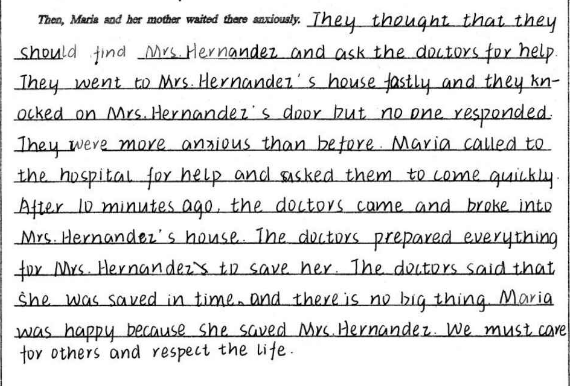 Then, Maria and her mother waited there anxiously. They thought that they
should find Mrs. Hernandez and ask the doctors for help.
They went to Mrs. Hernandez's house fastly and they kn-
ocked on Mrs. Hernandez's door but no one responded.
They were more anxious than before. Maria called to
the hospital for help and asked them to come quickly.
After 10 minutes ago, the doctors came and broke into
Mrs. Hernandez's house. The doctors prepared everything
for Mrs. Hernandez's to save her. The doctors said that
she was saved in time, and there is no big thing. Maria
was happy because she saved Mrs. Hernandez. We must care
for others and respect the life.